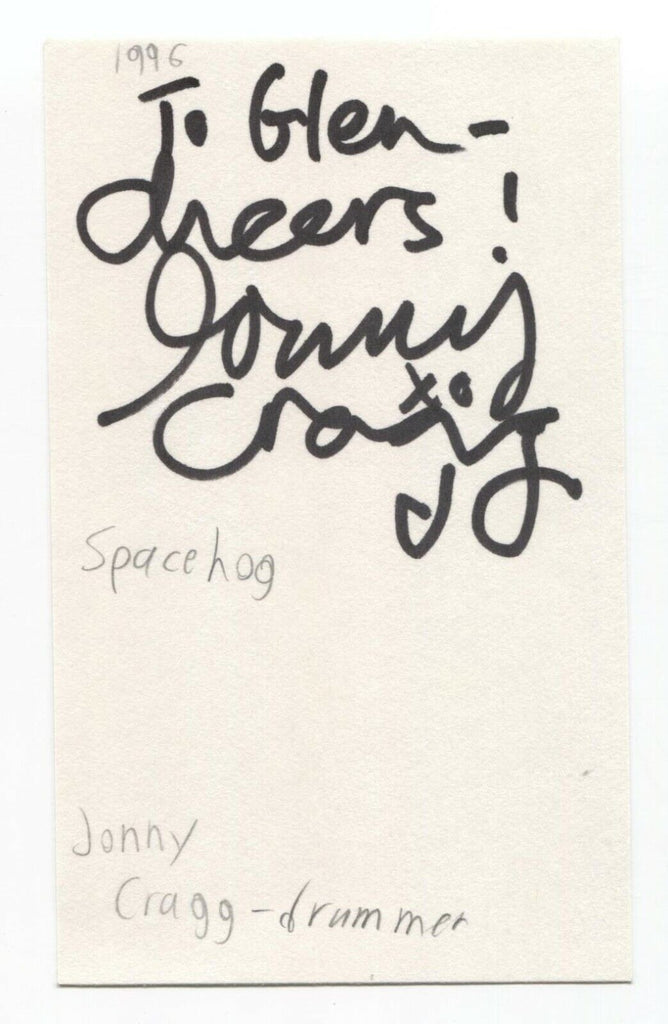 1996
To Glen -
cheers!
Jonny
xo
Cragg
Spacehog
Jonny
Cragg - drummer